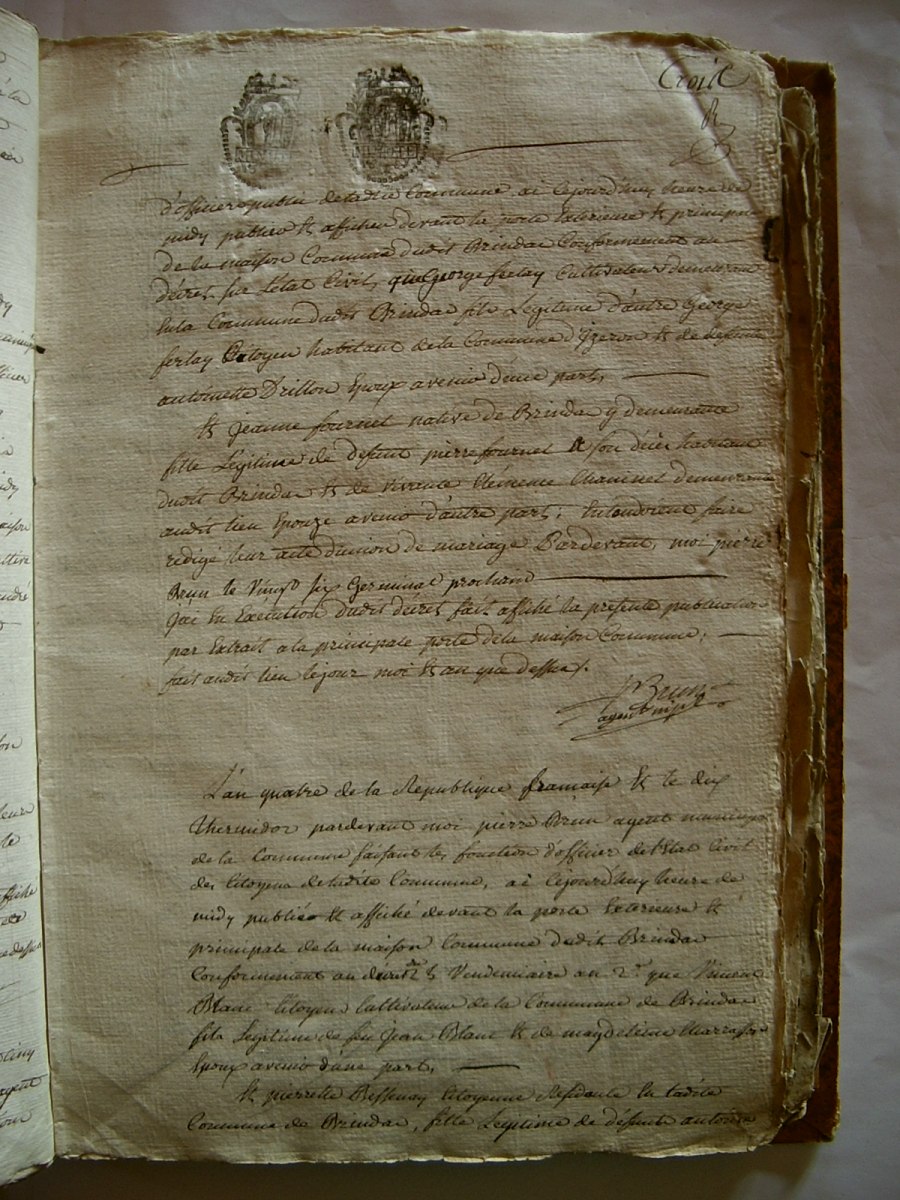 Troise
d'officier public de ladite Commune ai cejourdhuy heure de
midy publié et affiché devant la porte Exterieure et principale
de la maison Commune dudit Brindas Conformement au
décret sur l'état Civil, que George ferlay Cultivateur demeurant
En la Commune dudit Brindas fils Legitime d'autre George
ferlay Citoyen habitant de la Commune d'Yzeron et de defunte
antoinette Drillon Epoux avenir d'une part,
et jeanne fournel native de Brindas y demeurante
fille Légitime de defunt pierre fournel a son décès habitant
dudit Brindas et de vivante Clémence Chaminet demeurant
audit lieu Epouze avenir d'autre part; Entendirent faire
redigé leur acte d'union de mariage Pardevant, moi pierre
Brun le Vingt six Germinal prochaine
Jai En Execution dudit décret fait affiché la presente publication
par Extrait a la principale porte de la maison Commune;
fait audit lieu le jour moi et an que dessus.
Brun
agent mpl
L'an quatre de la Republique francaise et le dix
thermidor pardevant moi pierre Brun agent municipal
de la Commune faisant les fonction d'officier de l'Etat Civil
des Citoyens de ladite Commune, ai cejourdhuy heure de
midy publié et affiché devant la porte Exterieure et
principale de la maison Commune dudit Brindas
Conformement au decret Vendemiaire an 2e que Vincent
Blanc Citoyen Cultivateur de la Commune de Brindas
fils Legitime de feu Jean Blanc et de magdelaine
Epoux avenir d'une part,
et pierrette Bessenay Citoyenne Residante En ladite
Commune de Brindas, fille Legitime de défunt antoine